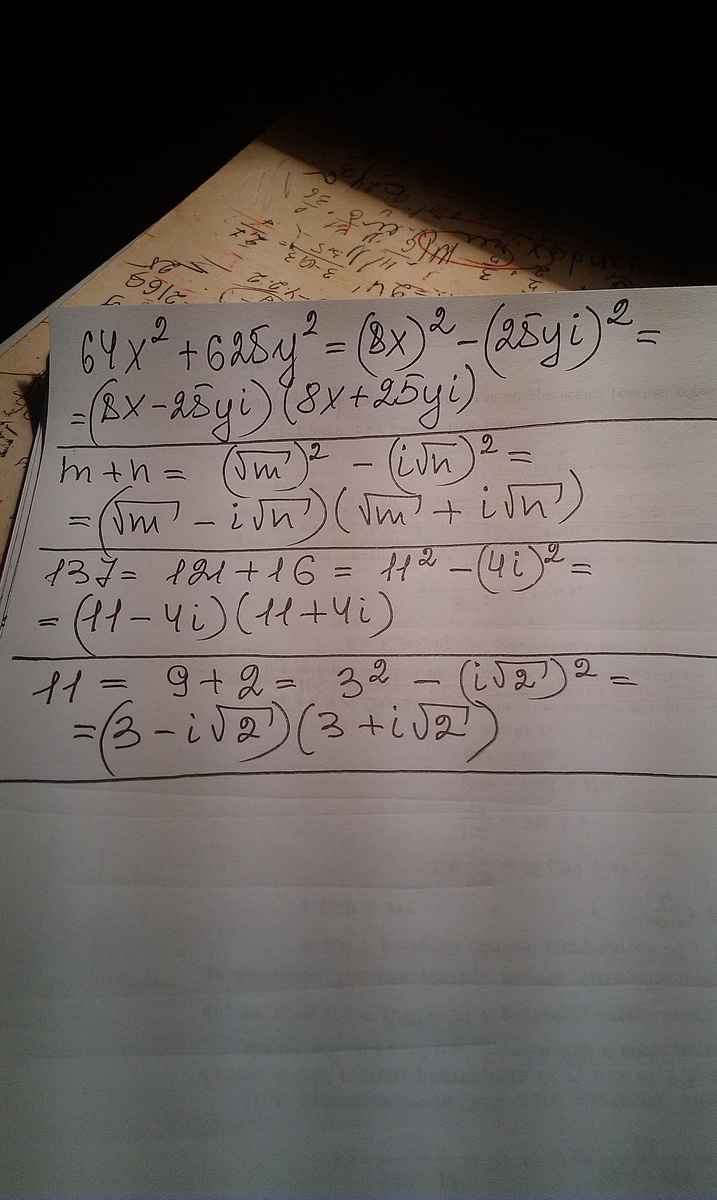 64x² + 625y² = (8x)² - (25yi)² =
= (8x - 25yi) (8x + 25yi)
m + n = (√m)² - (i√n)² =
= (√m - i√n) (√m + i√n)
137 = 121 + 16 = 11² - (4i)² =
= (11 - 4i) (11 + 4i)
11 = 9 + 2 = 3² - (i√2)² =
= (3 - i√2) (3 + i√2)